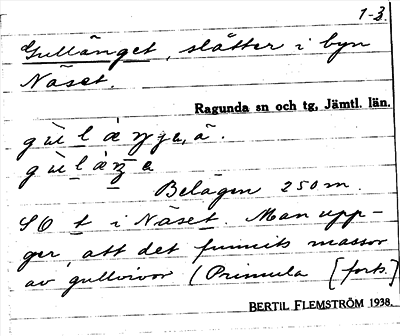 1-3.
Gullänget, slåtter i byn
Näset.
Ragunda sn och tg, Jämtl. län.
Belägen 250 m.
SO t i Näset. Man upp-
ger, att det funnits massor
av gullvivor (Primula [forts.]
BERTIL FLEMSTRÖM 1938.